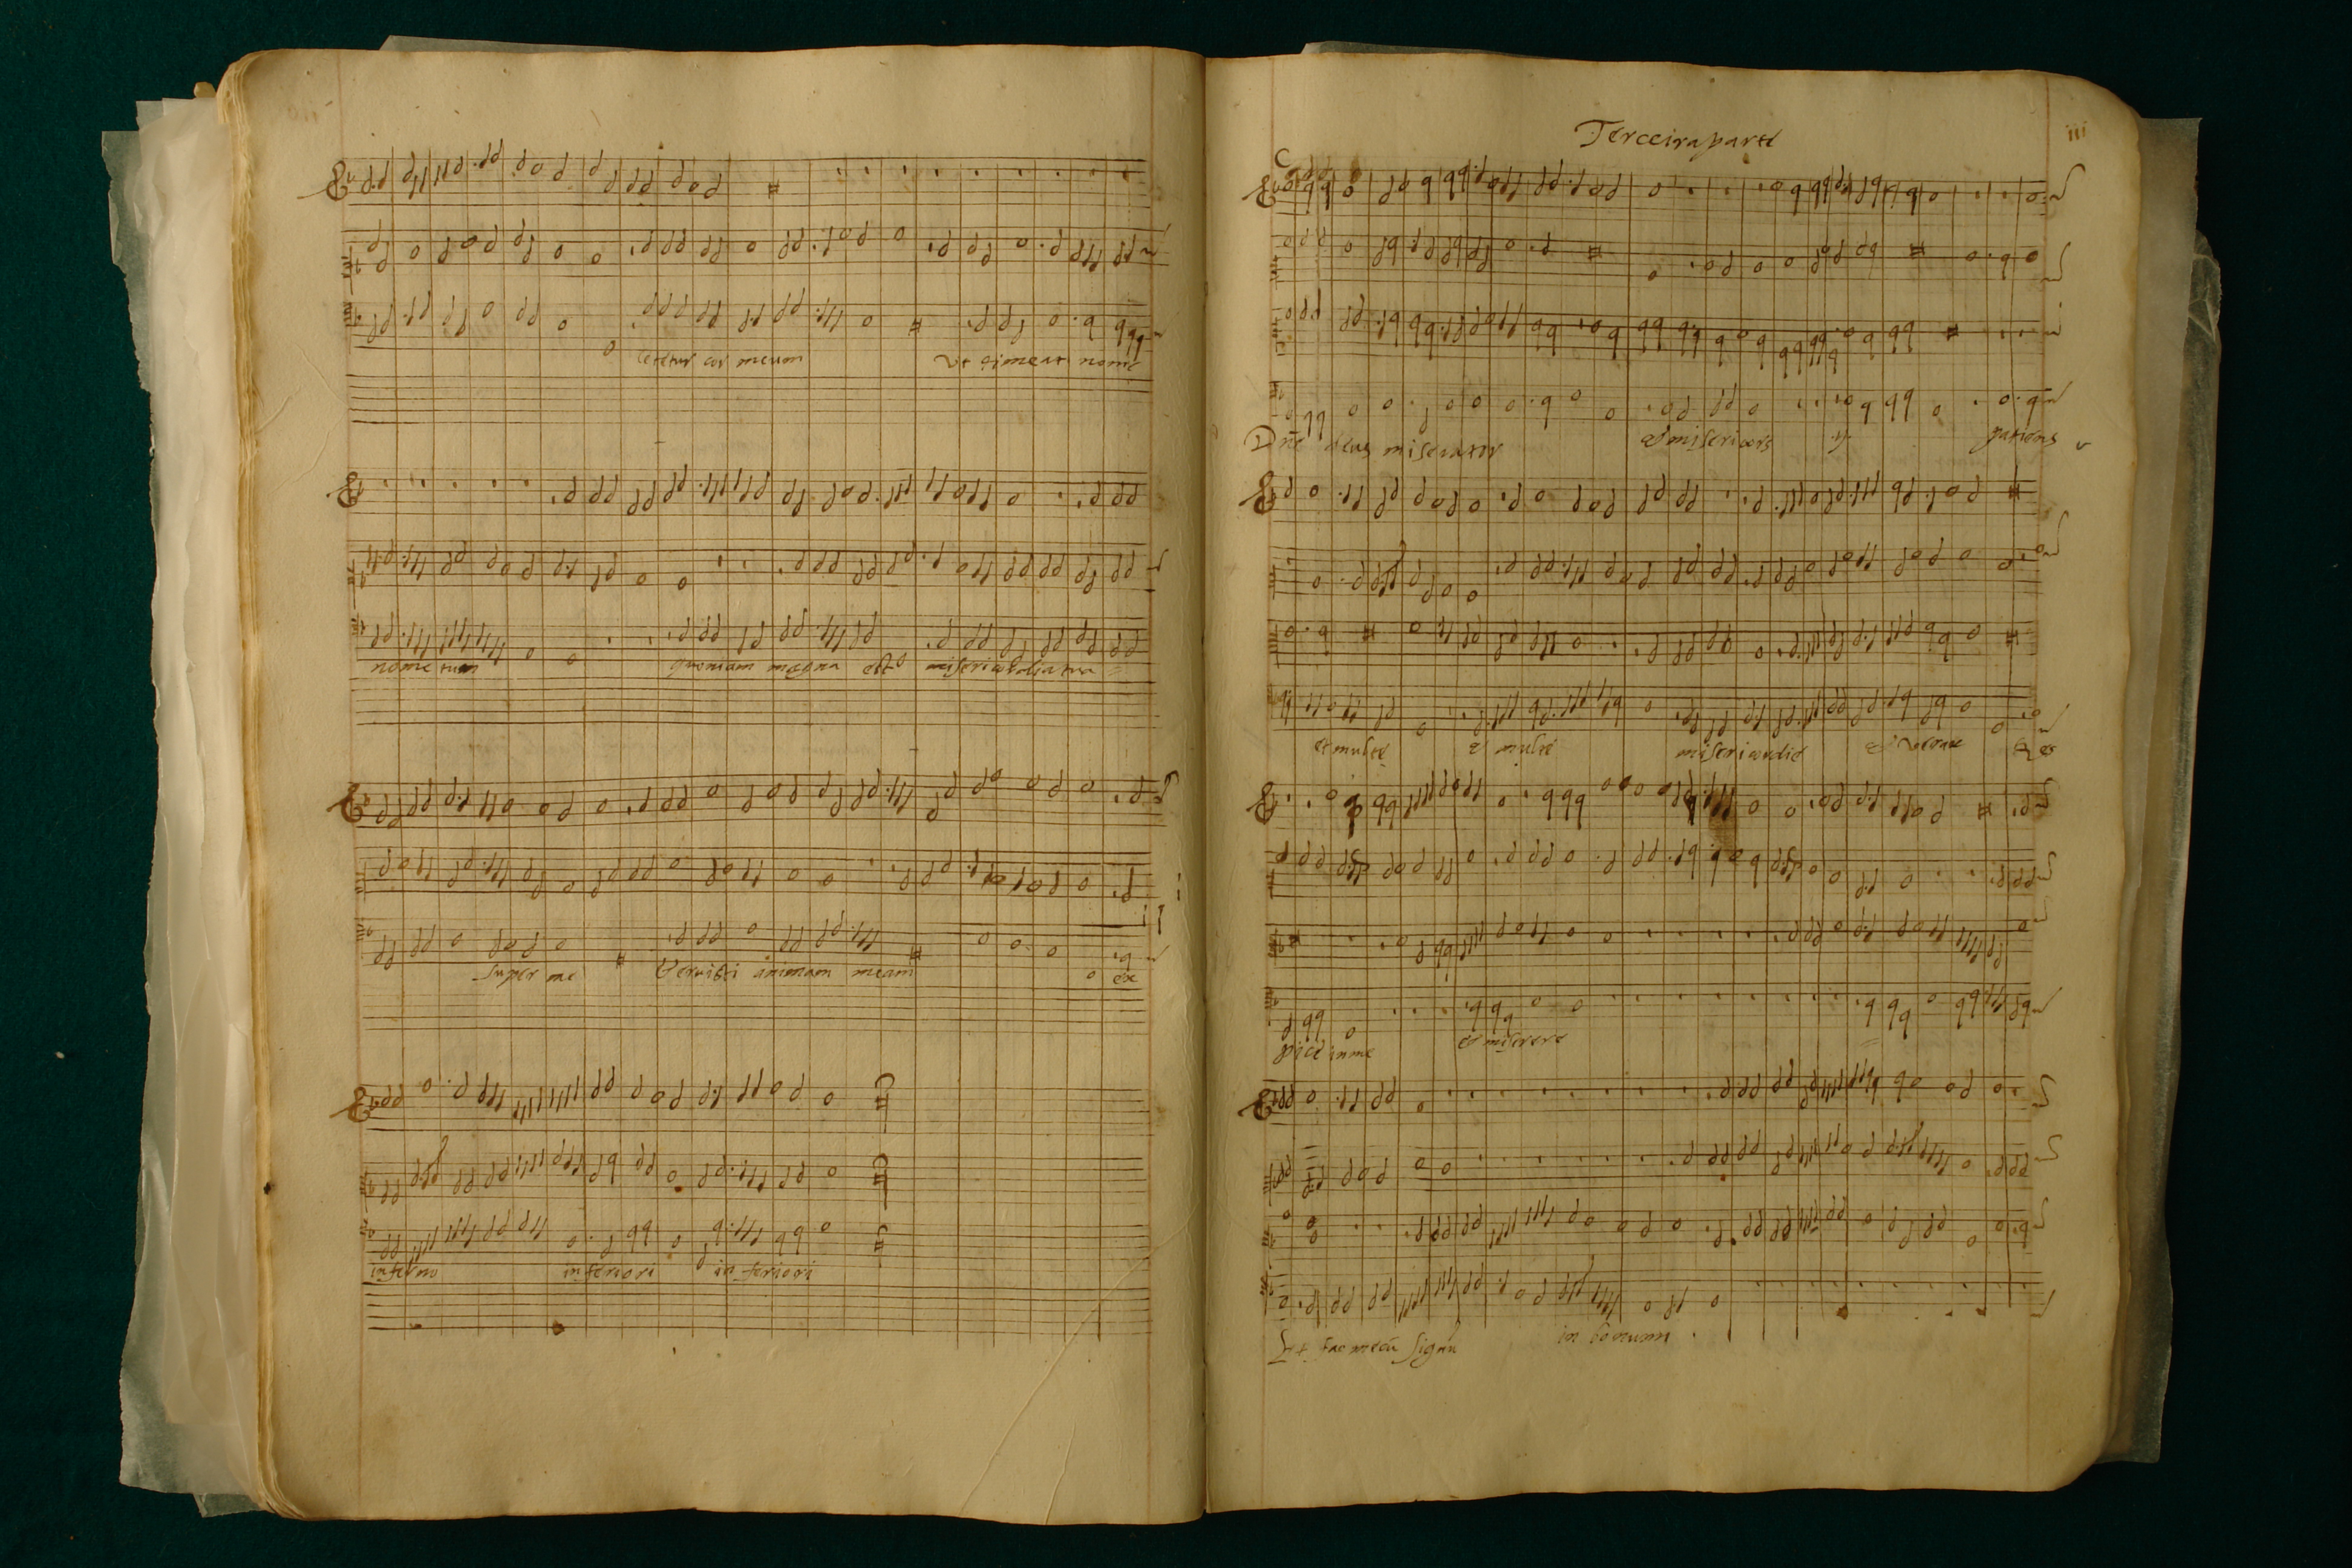 letetur cor meum ut timeat nomē
nomē tuum quoniam magna est misericordia tua
super me Eervisti animam meam ex
inferno inferiori inferiori
Terceira parte
iii
C
Dn̄e deus miserator et misericors .ij. patiens
et multē et multē misericordiē et verax Res
picē in me et miserere
Et fac mecū signū in bonum .